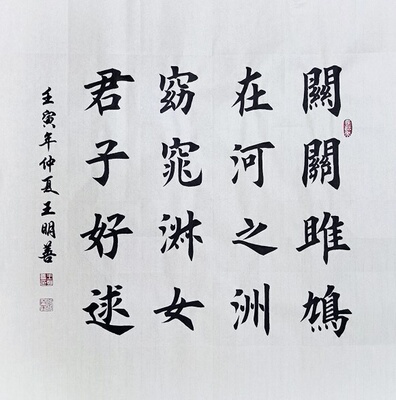 關關雎鳩
在河之洲
窈窕淑女
君子好逑
壬寅年仲夏王明善